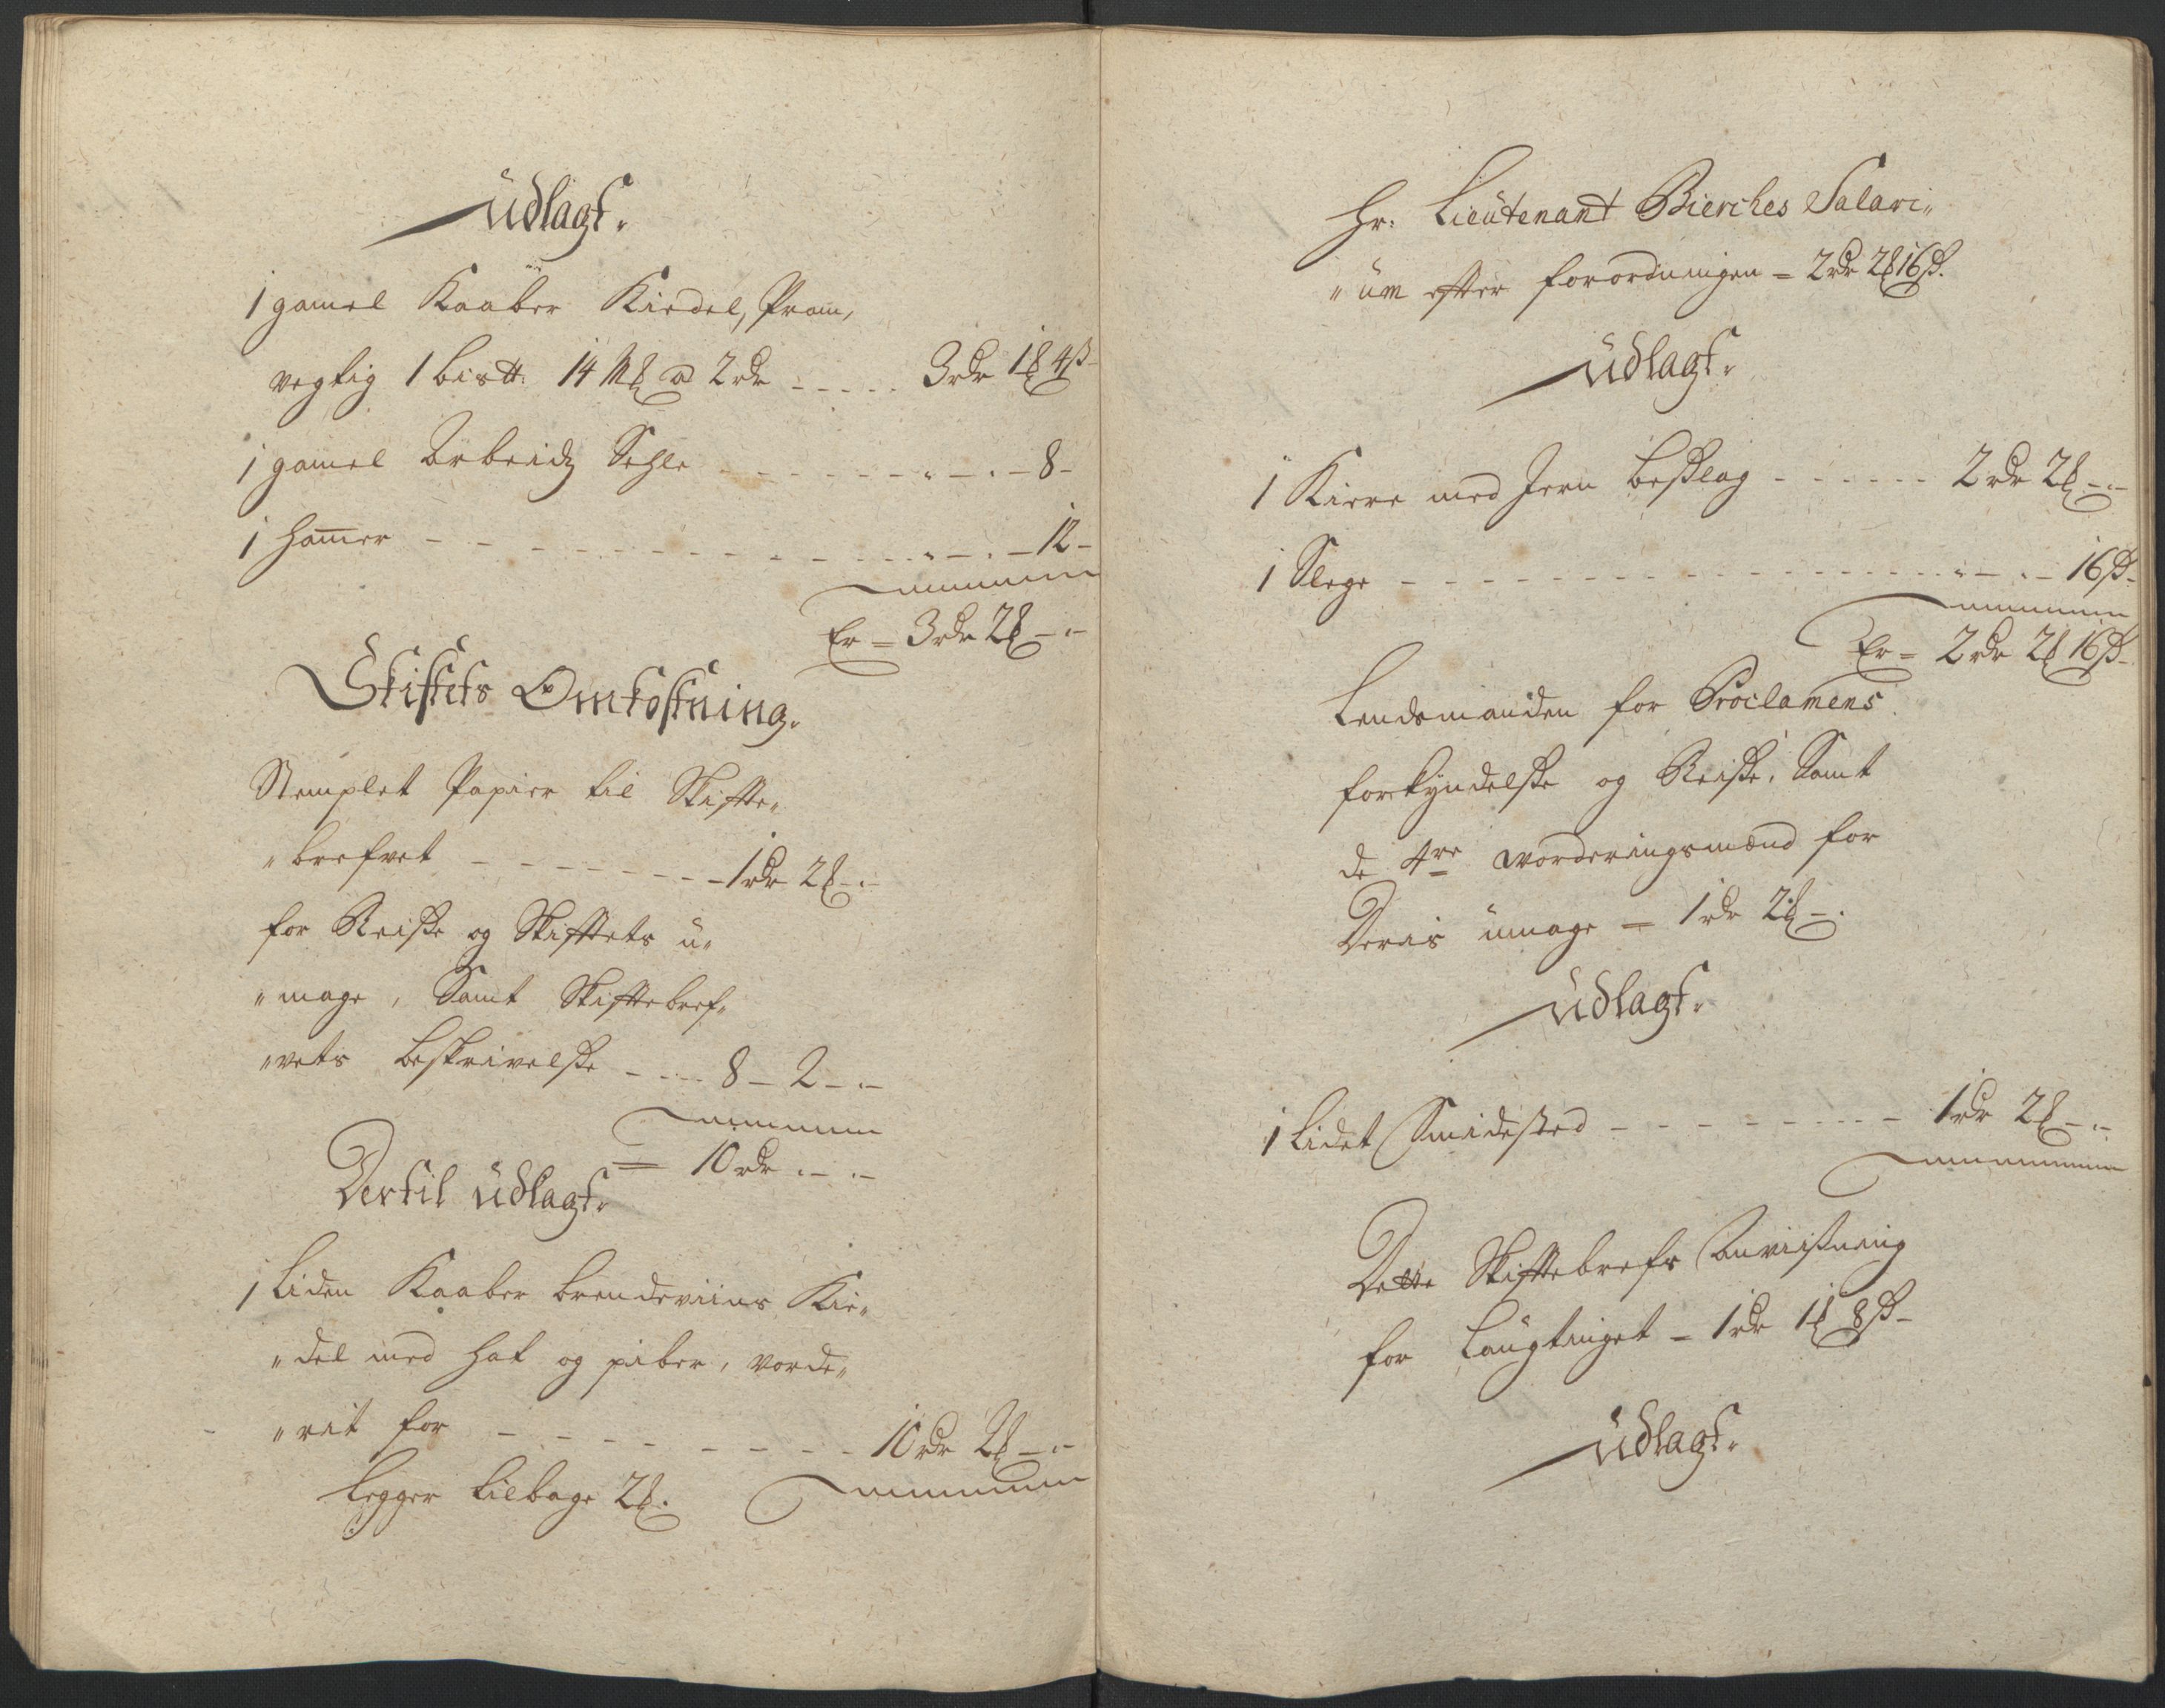 Udlagt.
1 gamel Kaaber Kiedel, Pram,
vegtig 1 bis℔: 14 M℔ a 2 rdr ----- 3 rdr 1 ℔ 4 ß
1 gamel Arbeidz Sehle - - - - - - - „ - . - 8 -
1 Ham̄er - - - - - - - - - - „ - . - 12 -
Er = 3 rdr 2 ℔ - . -
Skiftets Omkostning.
Stemplet Papier til Skifte„
„brefvet - - - - - - - 1 rdr 2 ℔ - . -
for Reise og Skifftets u„
„mage, Samt Skifftebref„
„vets beskrivelse - - - 8 - 2 - . -
= 10 rdr . - . -
Dertil Udlagt.
1 Liden Kaaber brendeviins Kie„
„del med hat og piber, vorde„
„rit for - - - - - - - 10 rdr 2 ℔ - . -
legger tilbage 2 ℔.
Hr: Lieutenant Bierches Salari„
„um efter forordningen = 2 rdr 2 ℔ 16 ß.
Udlagt.
1 Kierre med Jern beslag - - - - - - 2 rdr 2 ℔ - . -
1 Slege - - - - - - - - - - - - „ - . - 16 ß -
Er = 2 rdr 2 ℔ 16 ß -
Lendsmanden for Proclamens
forkyndelse og Reise, Samt
de 4re vorderingsmænd for
Deris umage = 1 rdr 2 ℔ - .
Udlagt.
1 Lidet Smidested - - - - - - - - 1 rdr 2 ℔ - . -
Dette Skifftebrefs Anviisning
for Laugtinget = 1 rdr 1 ℔ 8 ß -
Udlagt.